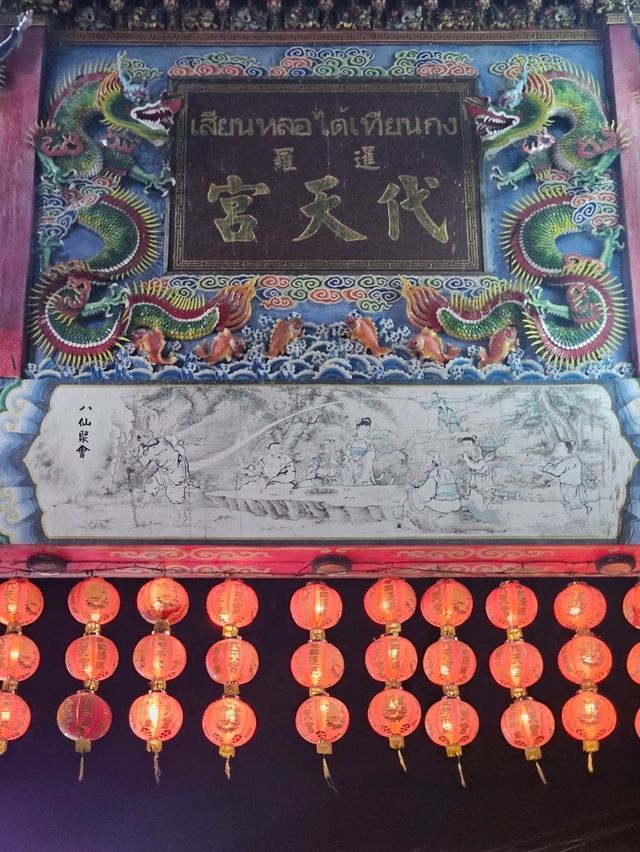 เสียนหลอไต้เทียนกง
暹羅
代天宮
八仙聚會